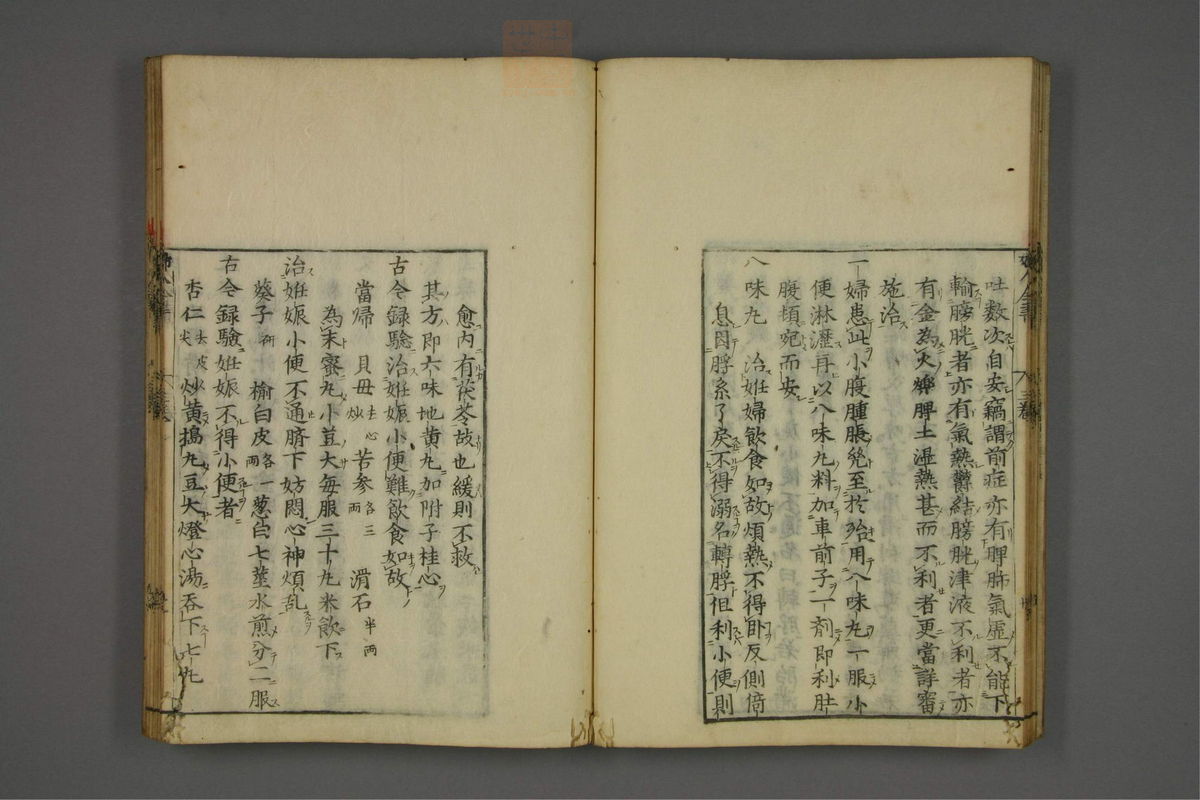 吐数次自安竊謂前症亦有脾肺氣虛不能下
輸膀胱者亦有氣熱欝結膀胱津液不利者亦
有金為火爍脾土濕熱甚而不利者更當詳審
施治
一婦患此小腹腫脹㡬至於殆用八味丸一服小
便淋瀝再以八味丸料加車前子一剤即利肚
腹頓宛而安
八味丸 治妊婦飲食如故煩熱不得卧反側倚
息因脬系了戾不得溺名轉脬但利小便則
愈内有茯苓故也緩則不救
其方即六味地黄丸加附子桂心
古今録驗治妊娠小便難飲食如故
當歸 貝母去心炒 苦参各三両 滑石半両
為末蜜丸小荳大毎服三十丸米飲下
治妊娠小便不通臍下妨悶心神煩乱
葵子研 榆白皮各一両 葱白七莖水煎分二服
古今録驗妊娠不得小便者
杏仁去皮尖炒黄搗丸豆大燈心湯吞下七丸